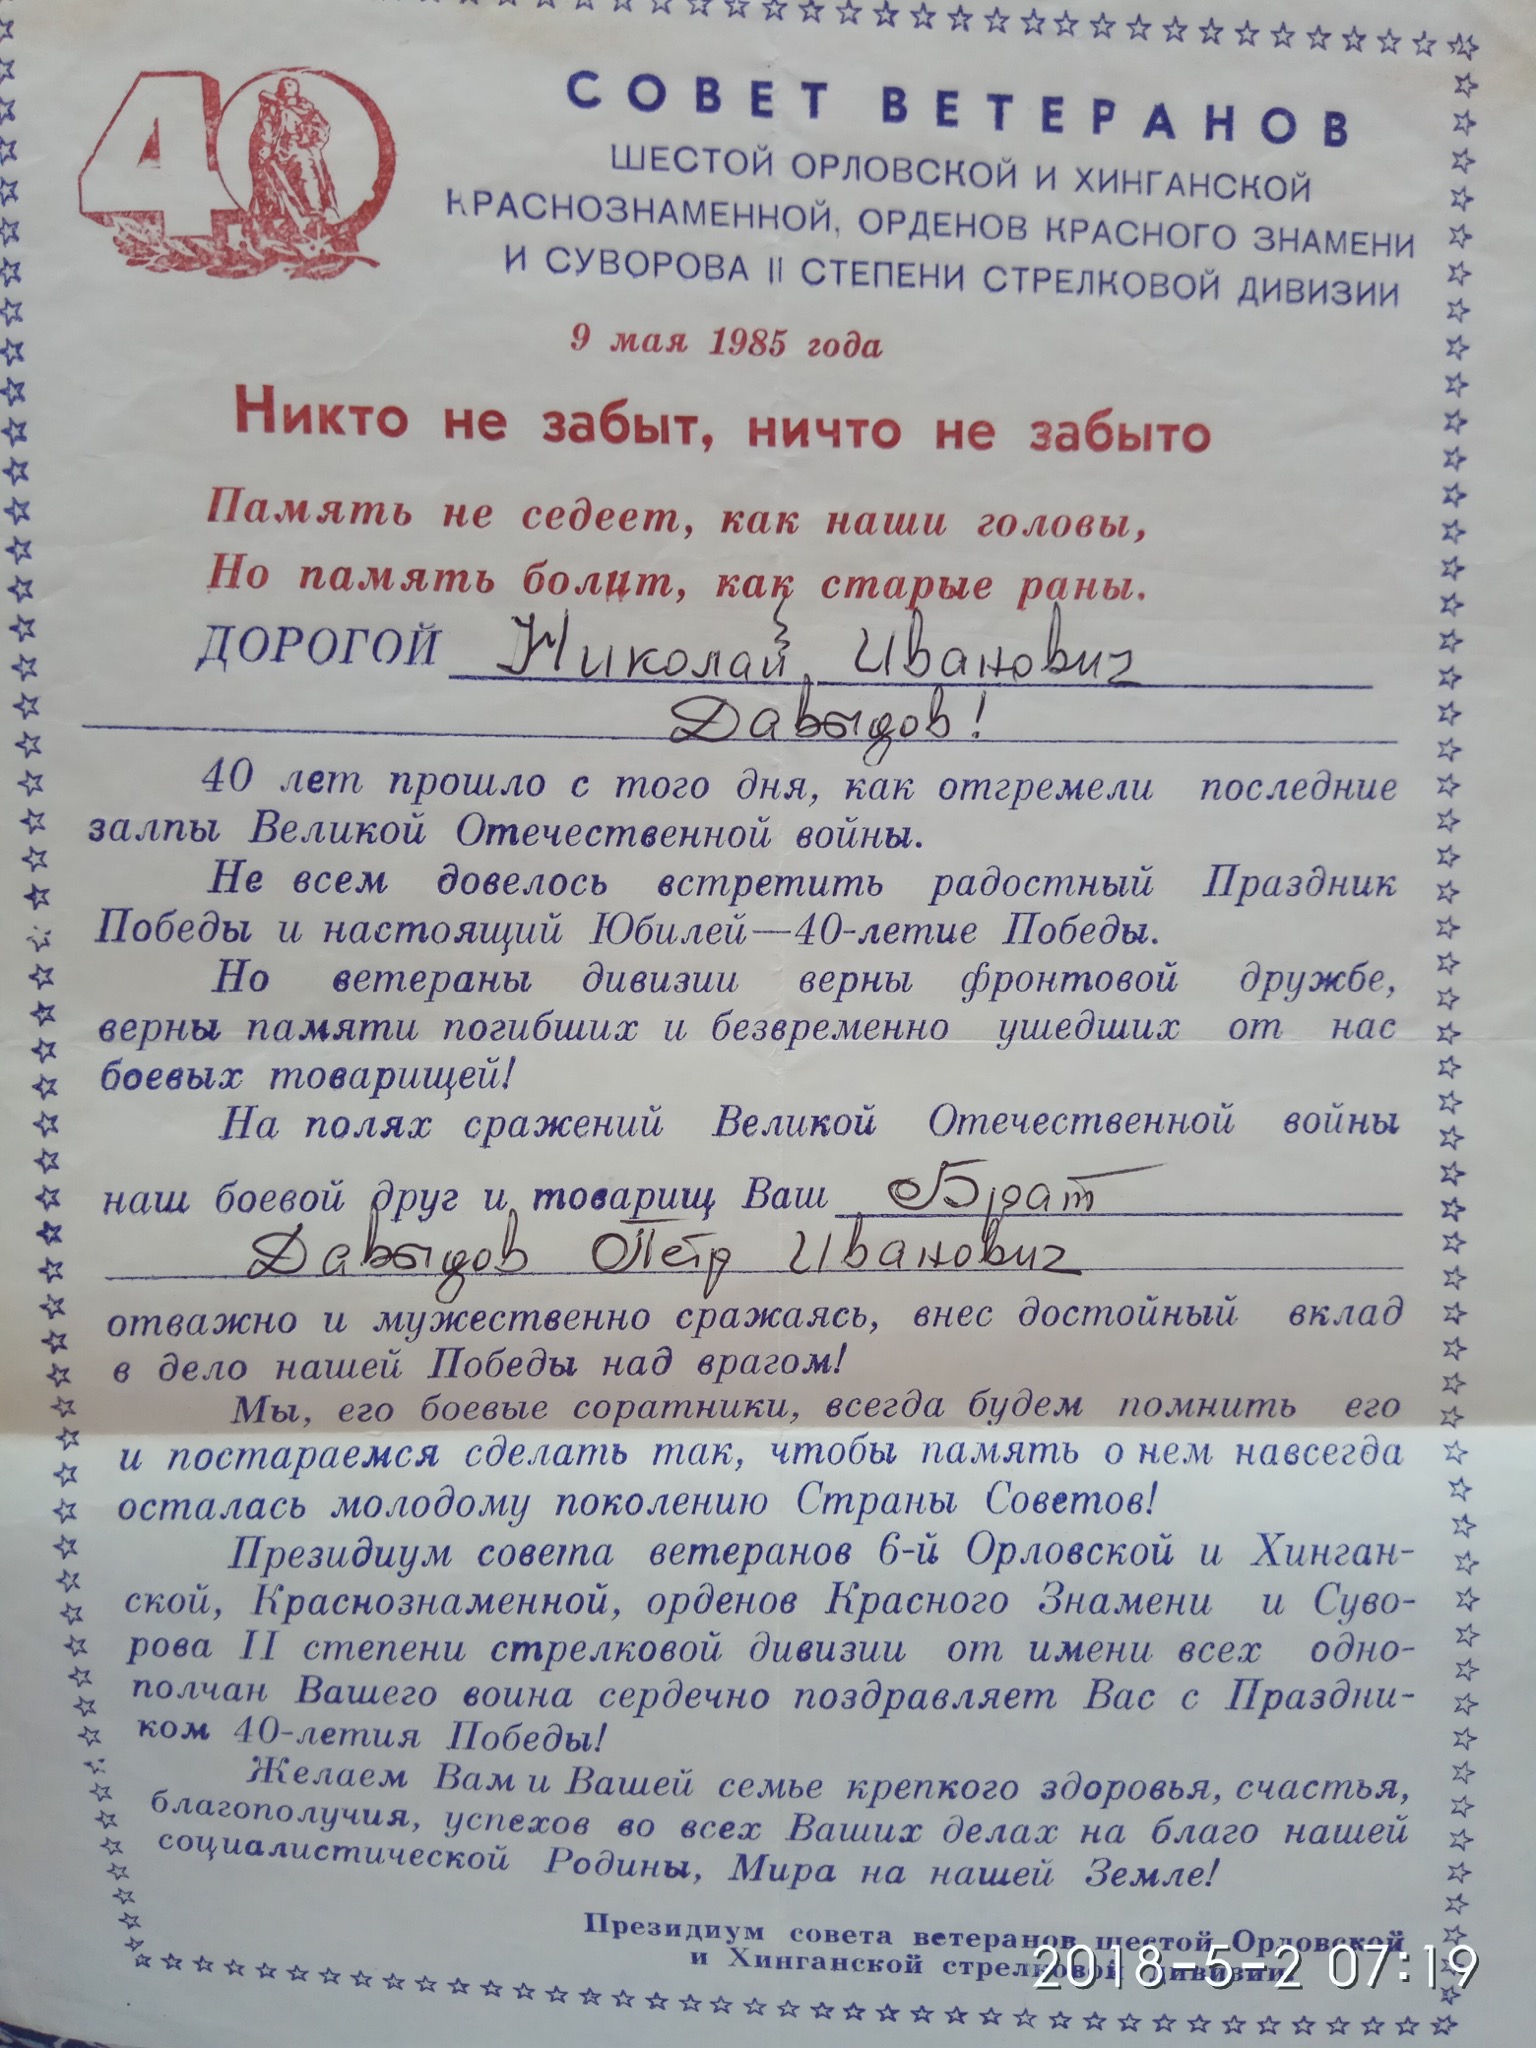 40
СОВЕТ ВЕТЕРАНОВ
ШЕСТОЙ ОРЛОВСКОЙ И ХИНГАНСКОЙ
КРАСНОЗНАМЕННОЙ, ОРДЕНОВ КРАСНОГО ЗНАМЕНИ
И СУВОРОВА II СТЕПЕНИ СТРЕЛКОВОЙ ДИВИЗИИ
9 мая 1985 года
Никто не забыт, ничто не забыто
Память не седеет, как наши головы,
Но память болит, как старые раны.
ДОРОГОЙ Николай Иванович
Давыдов!
40 лет прошло с того дня, как отгремели последние
залпы Великой Отечественной войны.
Не всем довелось встретить радостный Праздник
Победы и настоящий Юбилей—40-летие Победы.
Но ветераны дивизии верны фронтовой дружбе,
верны памяти погибших и безвременно ушедших от нас
боевых товарищей!
На полях сражений Великой Отечественной войны
наш боевой друг и товарищ Ваш Брат
Давыдов Пётр Иванович
отважно и мужественно сражаясь, внес достойный вклад
в дело нашей Победы над врагом!
Мы, его боевые соратники, всегда будем помнить его
и постараемся сделать так, чтобы память о нем навсегда
осталась молодому поколению Страны Советов!
Президиум совета ветеранов 6-й Орловской и Хинган-
ской, Краснознаменной, орденов Красного Знамени и Суво-
рова II степени стрелковой дивизии от имени всех одно-
полчан Вашего воина сердечно поздравляет Вас с Праздни-
ком 40-летия Победы!
Желаем Вам и Вашей семье крепкого здоровья, счастья,
благополучия, успехов во всех Ваших делах на благо нашей
социалистической Родины, Мира на нашей Земле!
Президиум совета ветеранов шестой Орловской
и Хинганской стрелковой дивизии
2018-5-2 07:19